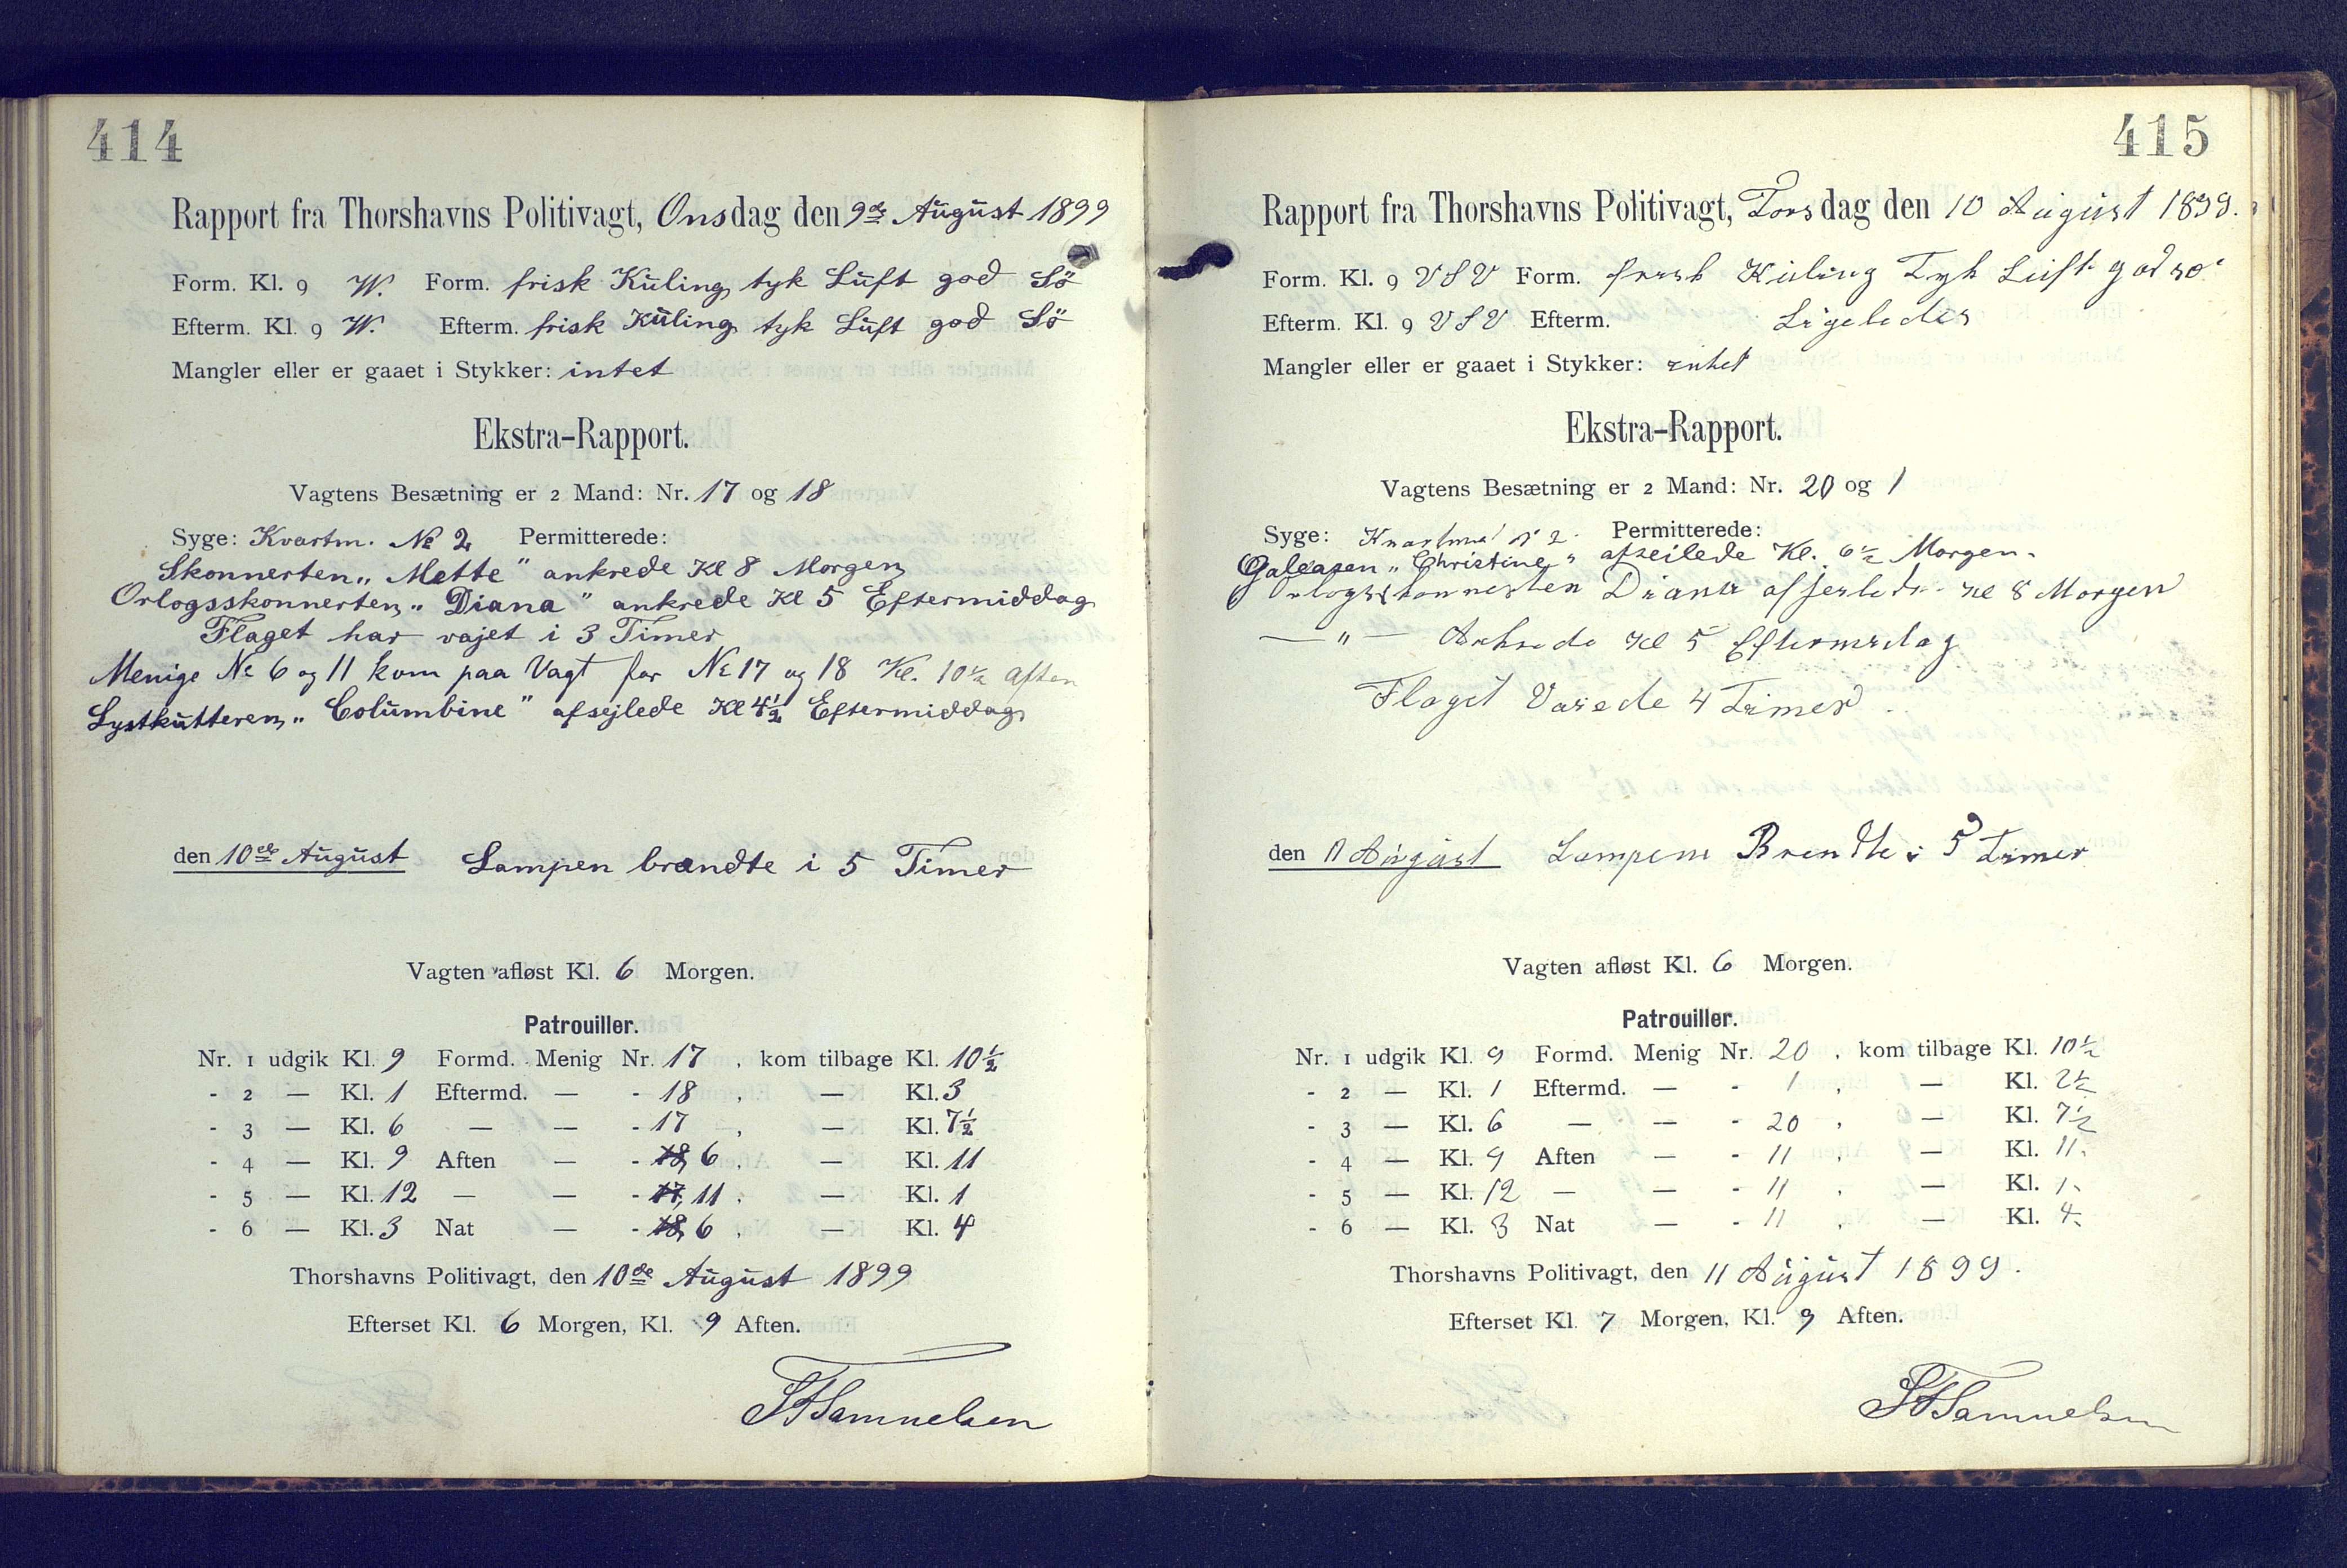 414
Rapport fra Thorshavns Politivagt, Onsdag den 9de August 1899
Form. Kl. 9 W. Form. frisk Kuling tyk Luft god Sö
Efterm. Kl. 9 W. Efterm. frisk Kuling tyk Luft god Sö
Mangler eller er gaaet i Stykker: intet
Ekstra-Rapport.
Vagtens Besætning er 2 Mand: Nr. 17 og 18
Syge: Kvartm. No 2 Permitterede:
Skonnerten „Mette" ankrede Kl 8 Morgen
Orlogsskonnerten „Diana" ankrede Kl 5 Eftermiddag
Flaget har vajet i 3 Timer
Menige No 6 og 11 kom paa Vagt for No 17 og 18 Kl. 10½ Aften
Lystkutteren „Columbine" afsejlede Kl 4½ Eftermiddag
den 10de August Lampen brændte i 5 Timer
Vagten afløst Kl. 6 Morgen.
Patrouiller.
Nr. 1 udgik Kl. 9 Formd. Menig Nr. 17 , kom tilbage Kl. 10½
- 2 — Kl. 1 Eftermd. — - 18 , — Kl. 3
- 3 — Kl. 6 — — - 17 , — Kl. 7½
- 4 — Kl. 9 Aften — - 18, 6 , — Kl. 11
- 5 — Kl. 12 — — - 17, 11 , — Kl. 1
- 6 — Kl. 3 Nat — - 18, 6 , — Kl. 4
Thorshavns Politivagt, den 10de August 1899
Efterset Kl. 6 Morgen, Kl. 9 Aften.
Samuelsen
415
Rapport fra Thorshavns Politivagt, Torsdag den 10 August 1899.
Form. Kl. 9 VSV Form. frisk Kuling Tyk Luft god sö
Efterm. Kl. 9 VSV Efterm. Ligeledes
Mangler eller er gaaet i Stykker: intet
Ekstra-Rapport.
Vagtens Besætning er 2 Mand: Nr. 20 og 1
Syge: No 2. Permitterede:
Galeasen „Christine" afseilede Kl. 6½ Morgen.
Orlogsskonnerten Diana afseilede Kl 8 Morgen
— " — Ankrede Kl 5 Eftermidag
Flaget Vaiede 4 Timer.
den 11 August Lampen Brendte i 5 Timer
Vagten afløst Kl. 6 Morgen.
Patrouiller.
Nr. 1 udgik Kl. 9 Formd. Menig Nr. 20 , kom tilbage Kl. 10½
- 2 — Kl. 1 Eftermd. — - 1 , — Kl. 2½
- 3 — Kl. 6 — — - 20 , — Kl. 7½
- 4 — Kl. 9 Aften — - 11 , — Kl. 11.
- 5 — Kl. 12 — — - 11 , — Kl. 1.
- 6 — Kl. 3 Nat — - 11 , — Kl. 4.
Thorshavns Politivagt, den 11 August 1899.
Efterset Kl. 7 Morgen, Kl. 9 Aften.
Samuelsen